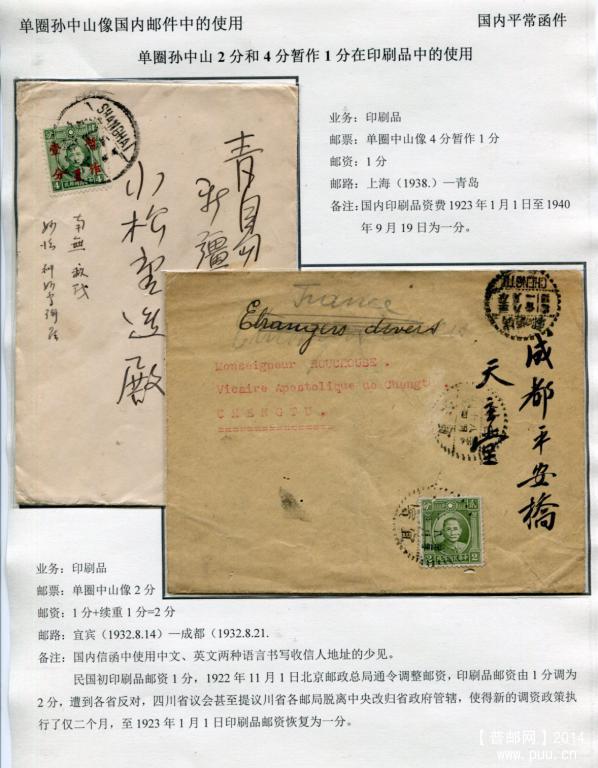 单圈孙中山像国内邮件中的使用
国内平常函件
单圈孙中山 2 分和 4 分暂作 1 分在印刷品中的使用
业务：印刷品
邮票：单圈中山像 4 分暂作 1 分
邮资：1 分
邮路：上海（1938.）—青岛
备注：国内印刷品资费 1923 年 1 月 1 日至 1940
年 9 月 19 日为一分。
SHANGHAI
青島
小松
殿
CHENGTU
France
Etrangers divers
Monseigneur ROUCHOUSE.
Vicaire Apostolique de Chengtu.
CHENGTU.
成都平安橋
天主堂
2
2
业务：印刷品
邮票：单圈中山像 2 分
邮资：1 分+续重 1 分=2 分
邮路：宜宾（1932.8.14）—成都（1932.8.21.
备注：国内信函中使用中文、英文两种语言书写收信人地址的少见。
民国初印刷品邮资 1 分，1922 年 11 月 1 日北京邮政总局通令调整邮资，印刷品邮资由 1 分调为
2 分，遭到各省反对，四川省议会甚至提议川省各邮局脱离中央改归省政府管辖，使得新的调资政策执
行了仅二个月，至 1923 年 1 月 1 日印刷品邮资恢复为一分。
【普邮网】2014
www.puu.cn